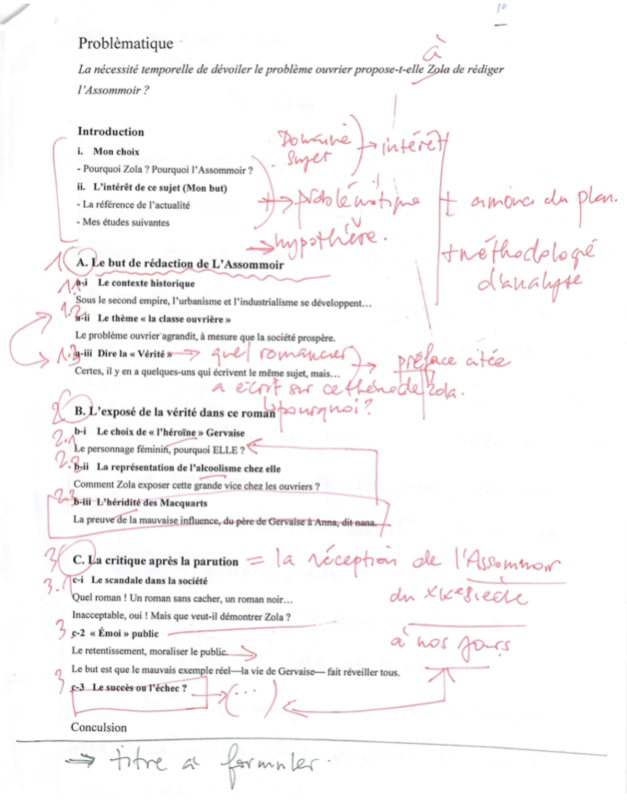 10
Problèmatique
à
La nécessité temporelle de dévoiler le problème ouvrier propose-t-elle Zola de rédiger
l'Assommoir ?
Introduction
Domaine
Sujet → intérêt
i. Mon choix
- Pourquoi Zola ? Pourquoi l'Assommoir ?
ii. L'intérêt de ce sujet (Mon but)
+→ problématique + annonce du plan.
- La référence de l'actualité
- Mes études suivantes
→ hypothère.
+ méthodologie
d'analyse
1 A. Le but de rédaction de L'Assommoir
1.1 a-i Le contexte historique
Sous le second empire, l'urbanisme et l'industrialisme se développent…
1.2 a-ii Le thème « la classe ouvrière »
Le problème ouvrier agrandit, à mesure que la société prospère.
1.3 a-iii Dire la « Vérité » → quel romancier → préface citée
Certes, il y en a quelques-uns qui écrivent le même sujet, mais…
a écrit sur ce thème de Zola.
pourquoi ?
2 B. L'exposé de la vérité dans ce roman
2.1 b-i Le choix de « l'héroïne » Gervaise
Le personnage féminin, pourquoi ELLE ?
2.2 b-ii La représentation de l'alcoolisme chez elle
Comment Zola exposer cette grande vice chez les ouvriers ?
2.3 b-iii L'héridité des Macquarts
La preuve de la mauvaise influence, du père de Gervaise à Anna, dit nana.
3 C. La critique après la parution = la réception de l'Assommoir
3.1 c-i Le scandale dans la société
du XIXe siècle
Quel roman ! Un roman sans cacher, un roman noir…
Inacceptable, oui ! Mais que veut-il démontrer Zola ?
3 c-2 « Émoi » public
à nos jours
Le retentissement, moraliser le public.
Le but est que le mauvais exemple réel—la vie de Gervaise— fait réveiller tous.
3 c-3 Le succès ou l'échec ? → (…)
Conculsion
→ titre à formuler.